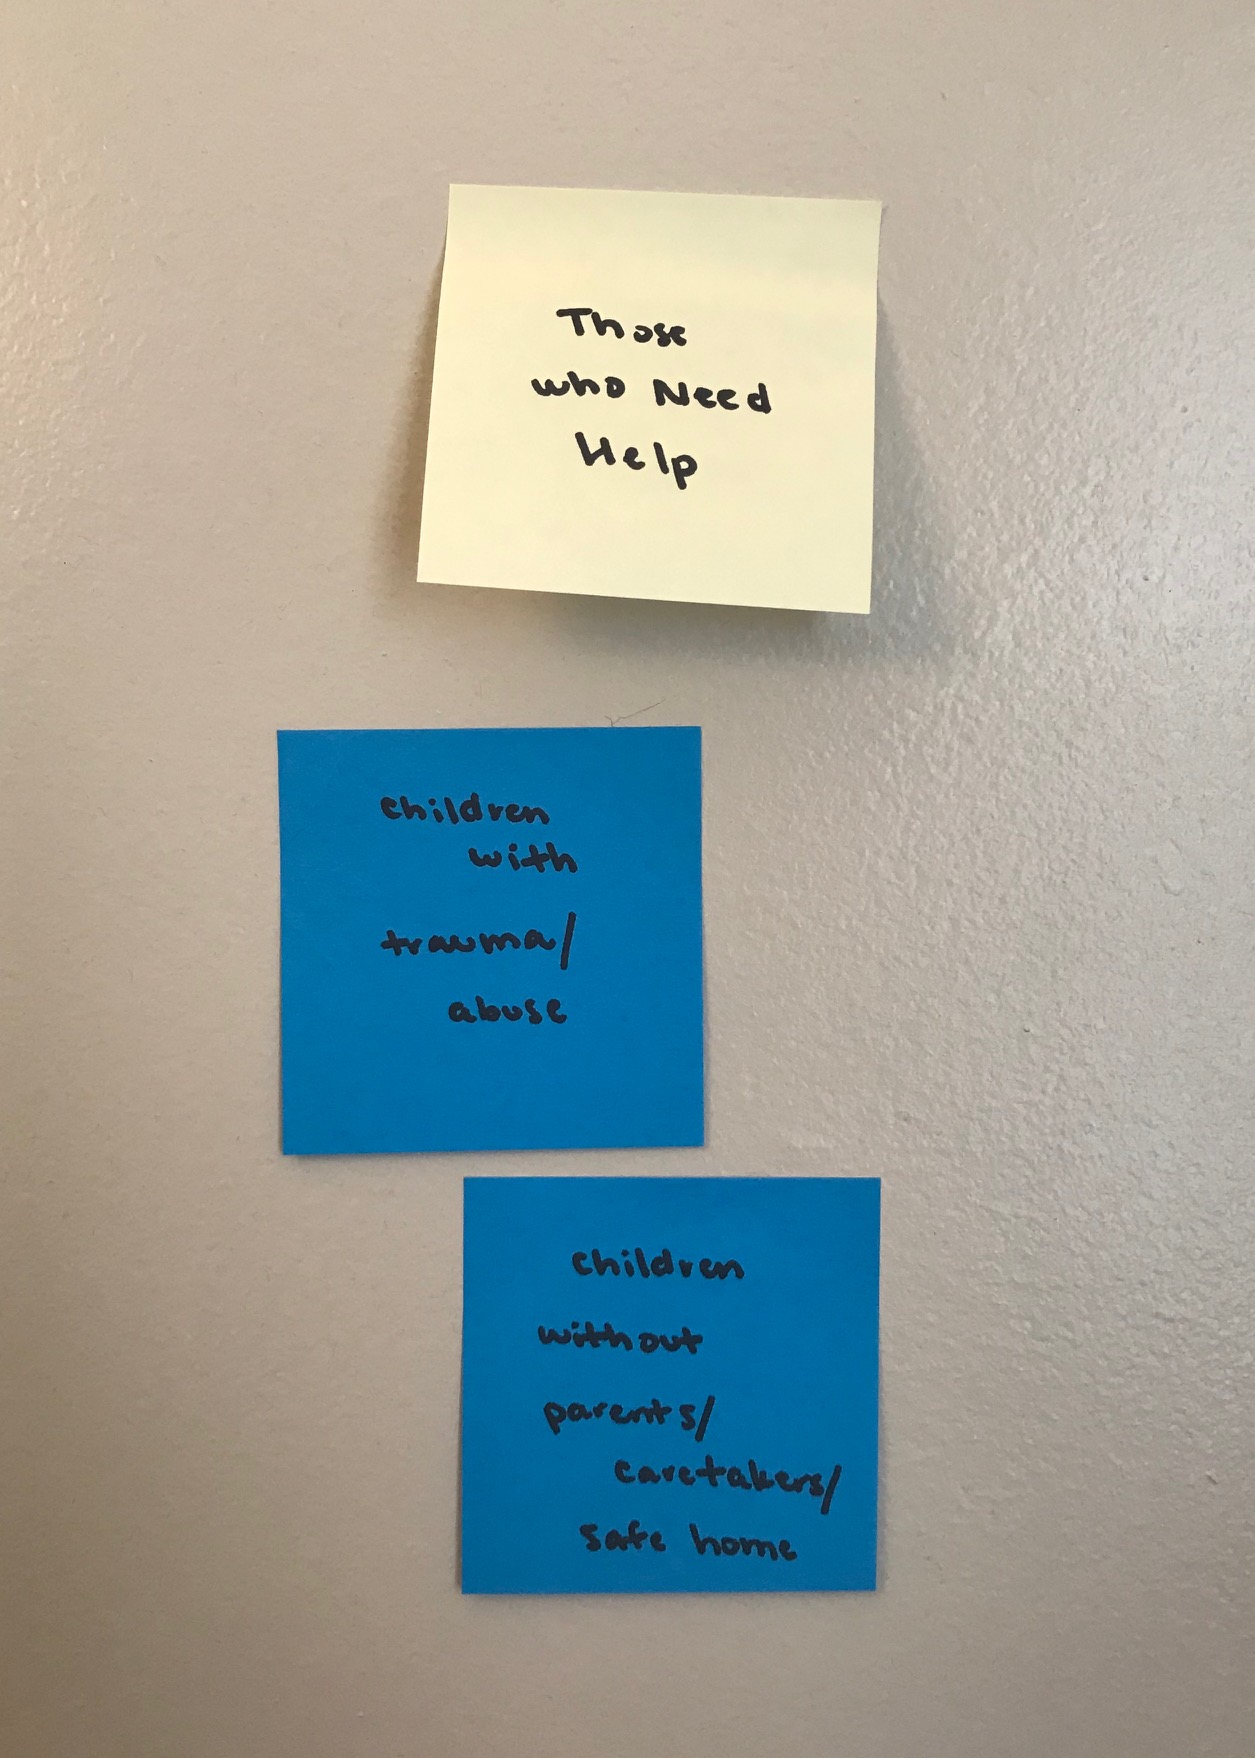 Those
who Need
Help
children
with
trauma/
abuse
children
without
parents/
caretakers/
safe home